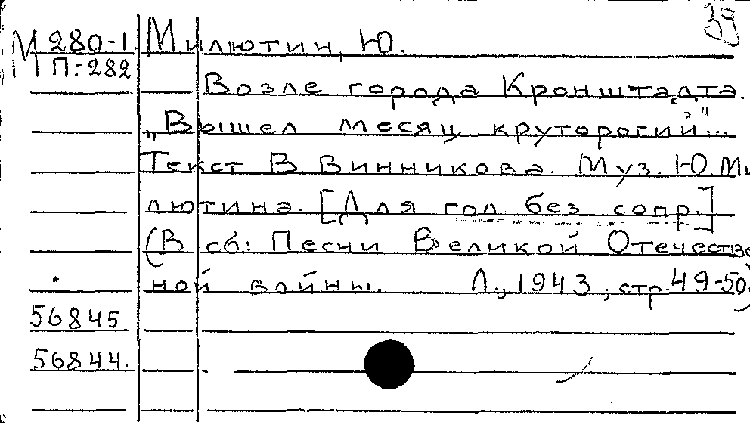 39
М 280-1 Милютин, Ю.
П:282
Возле города Кронштадта.
„Вышел месяц круторогий"...
Текст В Винникова. Муз. Ю. Ми
лютина. [Для гол без сопр.]
(В сб: Песни Великой Отечестве
ной войны. Л., 1943, стр 49-50)
56845
56844.